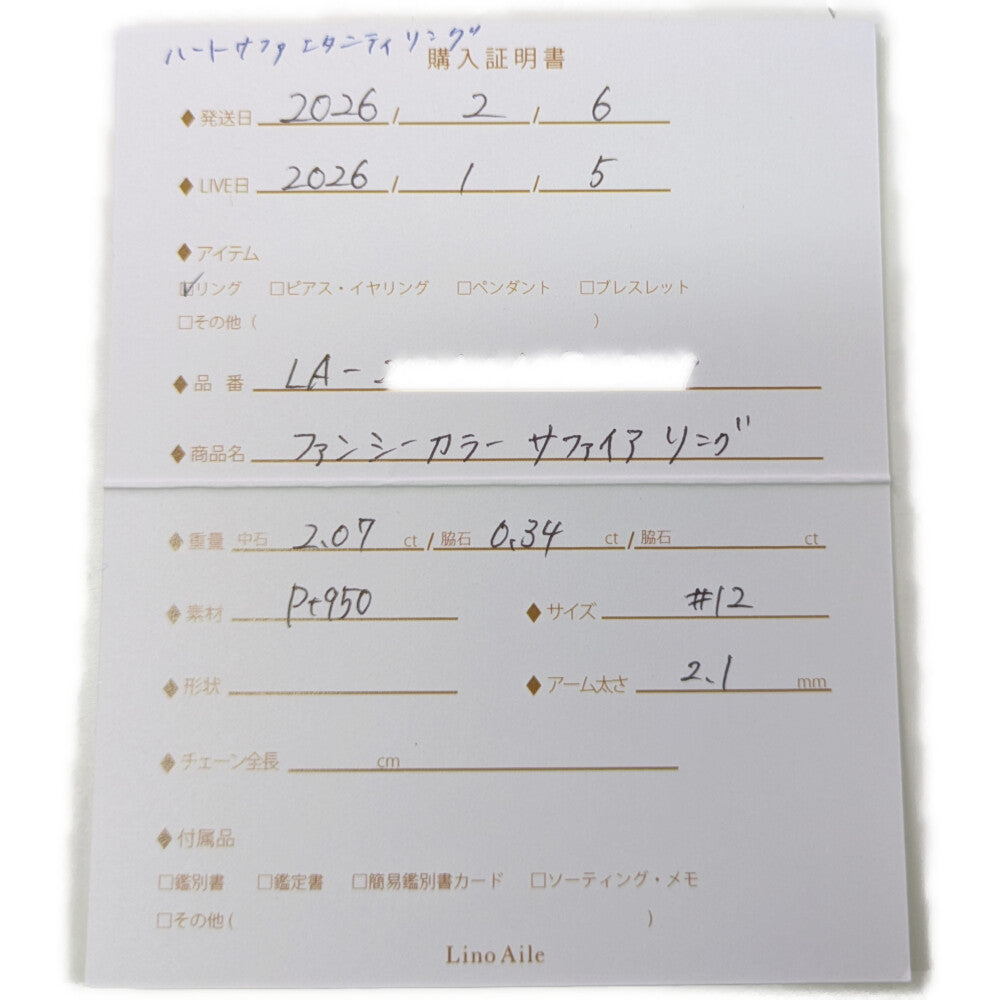 ハートサファ エタニティリング
購入証明書
◆発送日 2026 / 2 / 6
◆LIVE日 2026 / 1 / 5
◆アイテム
☑リング □ピアス・イヤリング □ペンダント □ブレスレット
□その他 ( )
◆品 番 LA-
◆商品名 ファンシーカラー サファイア リング
◆重量 中石 2.07 ct / 脇石 0.34 ct / 脇石 ct
◆素材 Pt950 ◆サイズ #12
◆形状 ◆アーム太さ 2.1 mm
◆チェーン全長 cm
◆付属品
□鑑別書 □鑑定書 □簡易鑑別書カード □ソーティング・メモ
□その他 ( )
Lino Aile